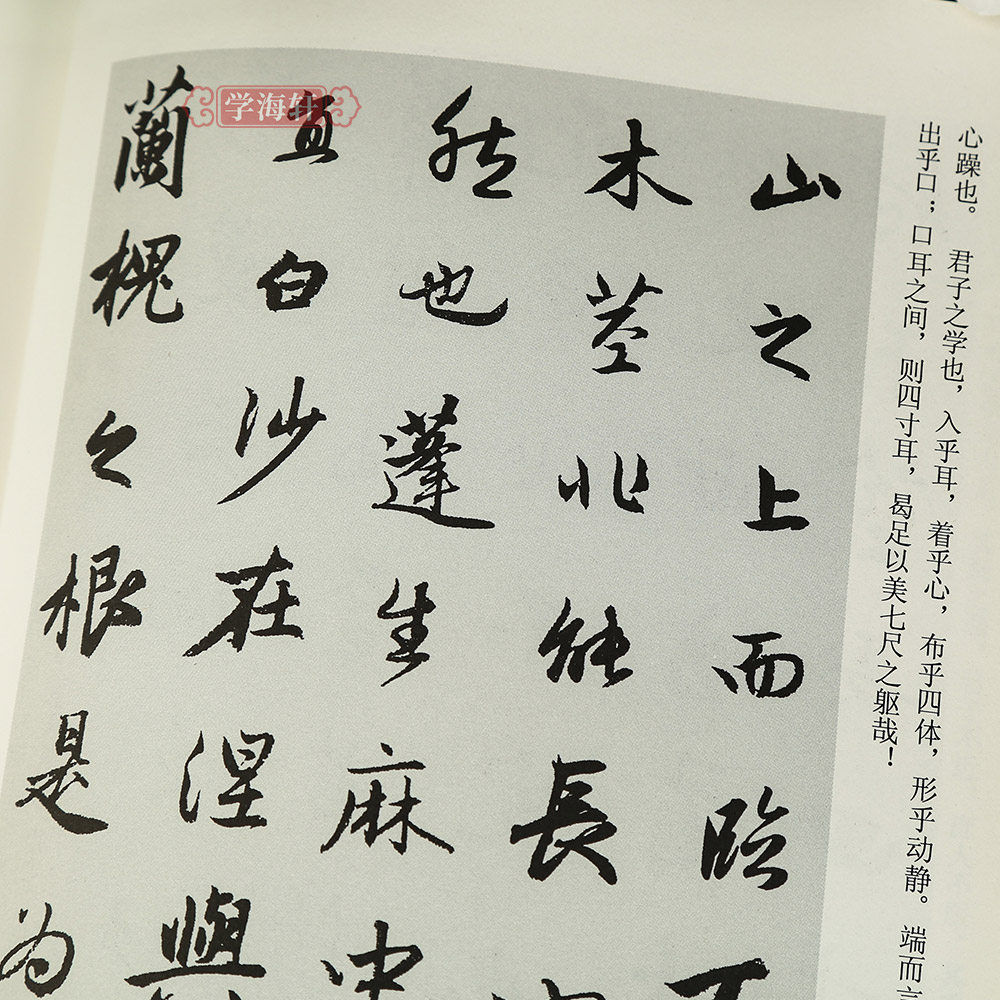 心躁也。 君子之学也，入乎耳，着乎心，布乎四体，形乎动静。端而
出乎口；口耳之间，则四寸耳，曷足以美七尺之躯哉！
山之上而臨
木茎非能長
然也蓬生麻中
直白沙在涅與
蘭槐之根是为
学海轩